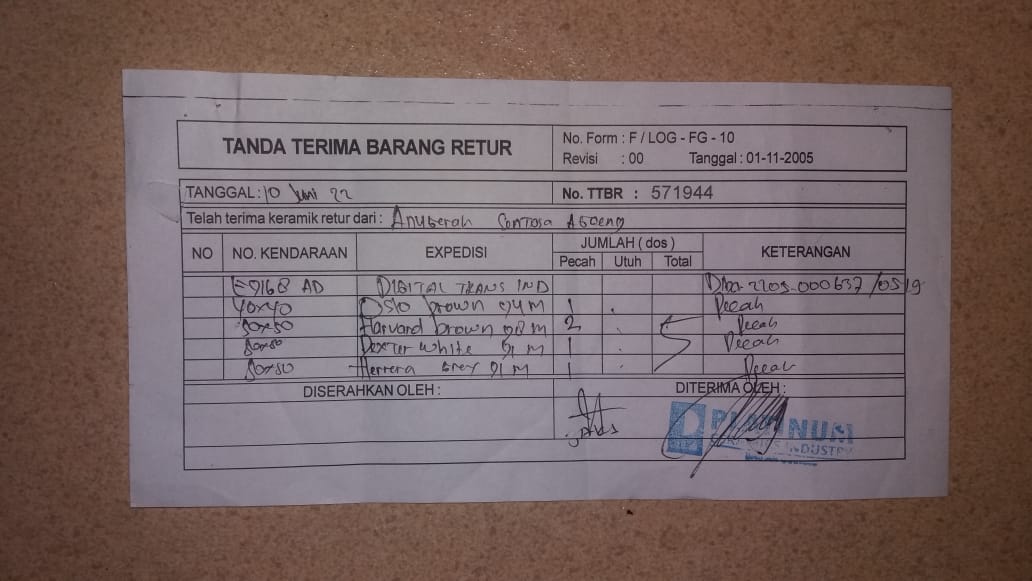 TANDA TERIMA BARANG RETUR
No. Form : F / LOG - FG - 10
Revisi : 00 Tanggal : 01-11-2005
TANGGAL : 10 Juni 22
No. TTBR : 571944
Telah terima keramik retur dari : Anugerah Contosa Agoeng
NO NO. KENDARAAN EXPEDISI JUMLAH ( dos ) KETERANGAN
Pecah Utuh Total
E 9168 AD DIGITAL TRANS IND 2205-000637 /0519
40x40 Oslo brown 04 M 1 Pecah
50x50 Harvard brown 08 M 2 5 Pecah
50x50 Dexter white 01 M 1 Pecah
50x50 Herrera Grey 01 M 1 Pecah
DISERAHKAN OLEH : DITERIMA OLEH :
PLATINUM
INDUSTRY